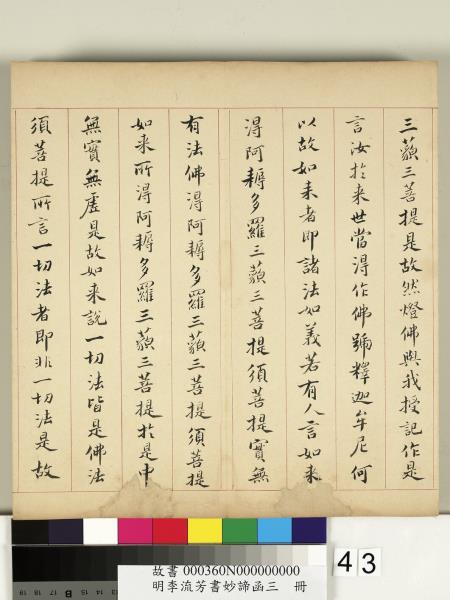 三藐三菩提是故然燈佛與我授記作是
言汝於来世當淂作佛號釋迦牟尼何
以故如来者即諸法如義若有人言如来
淂阿耨多羅三藐三菩提須菩提實無
有法佛淂阿耨多羅三藐三菩提須菩提
如来所淂阿耨多羅三藐三菩提於是中
無實無虛是故如来說一切法皆是佛法
須菩提所言一切法者即非一切法是故
43
故書 000360N000000000
明李流芳書妙諦函三 冊